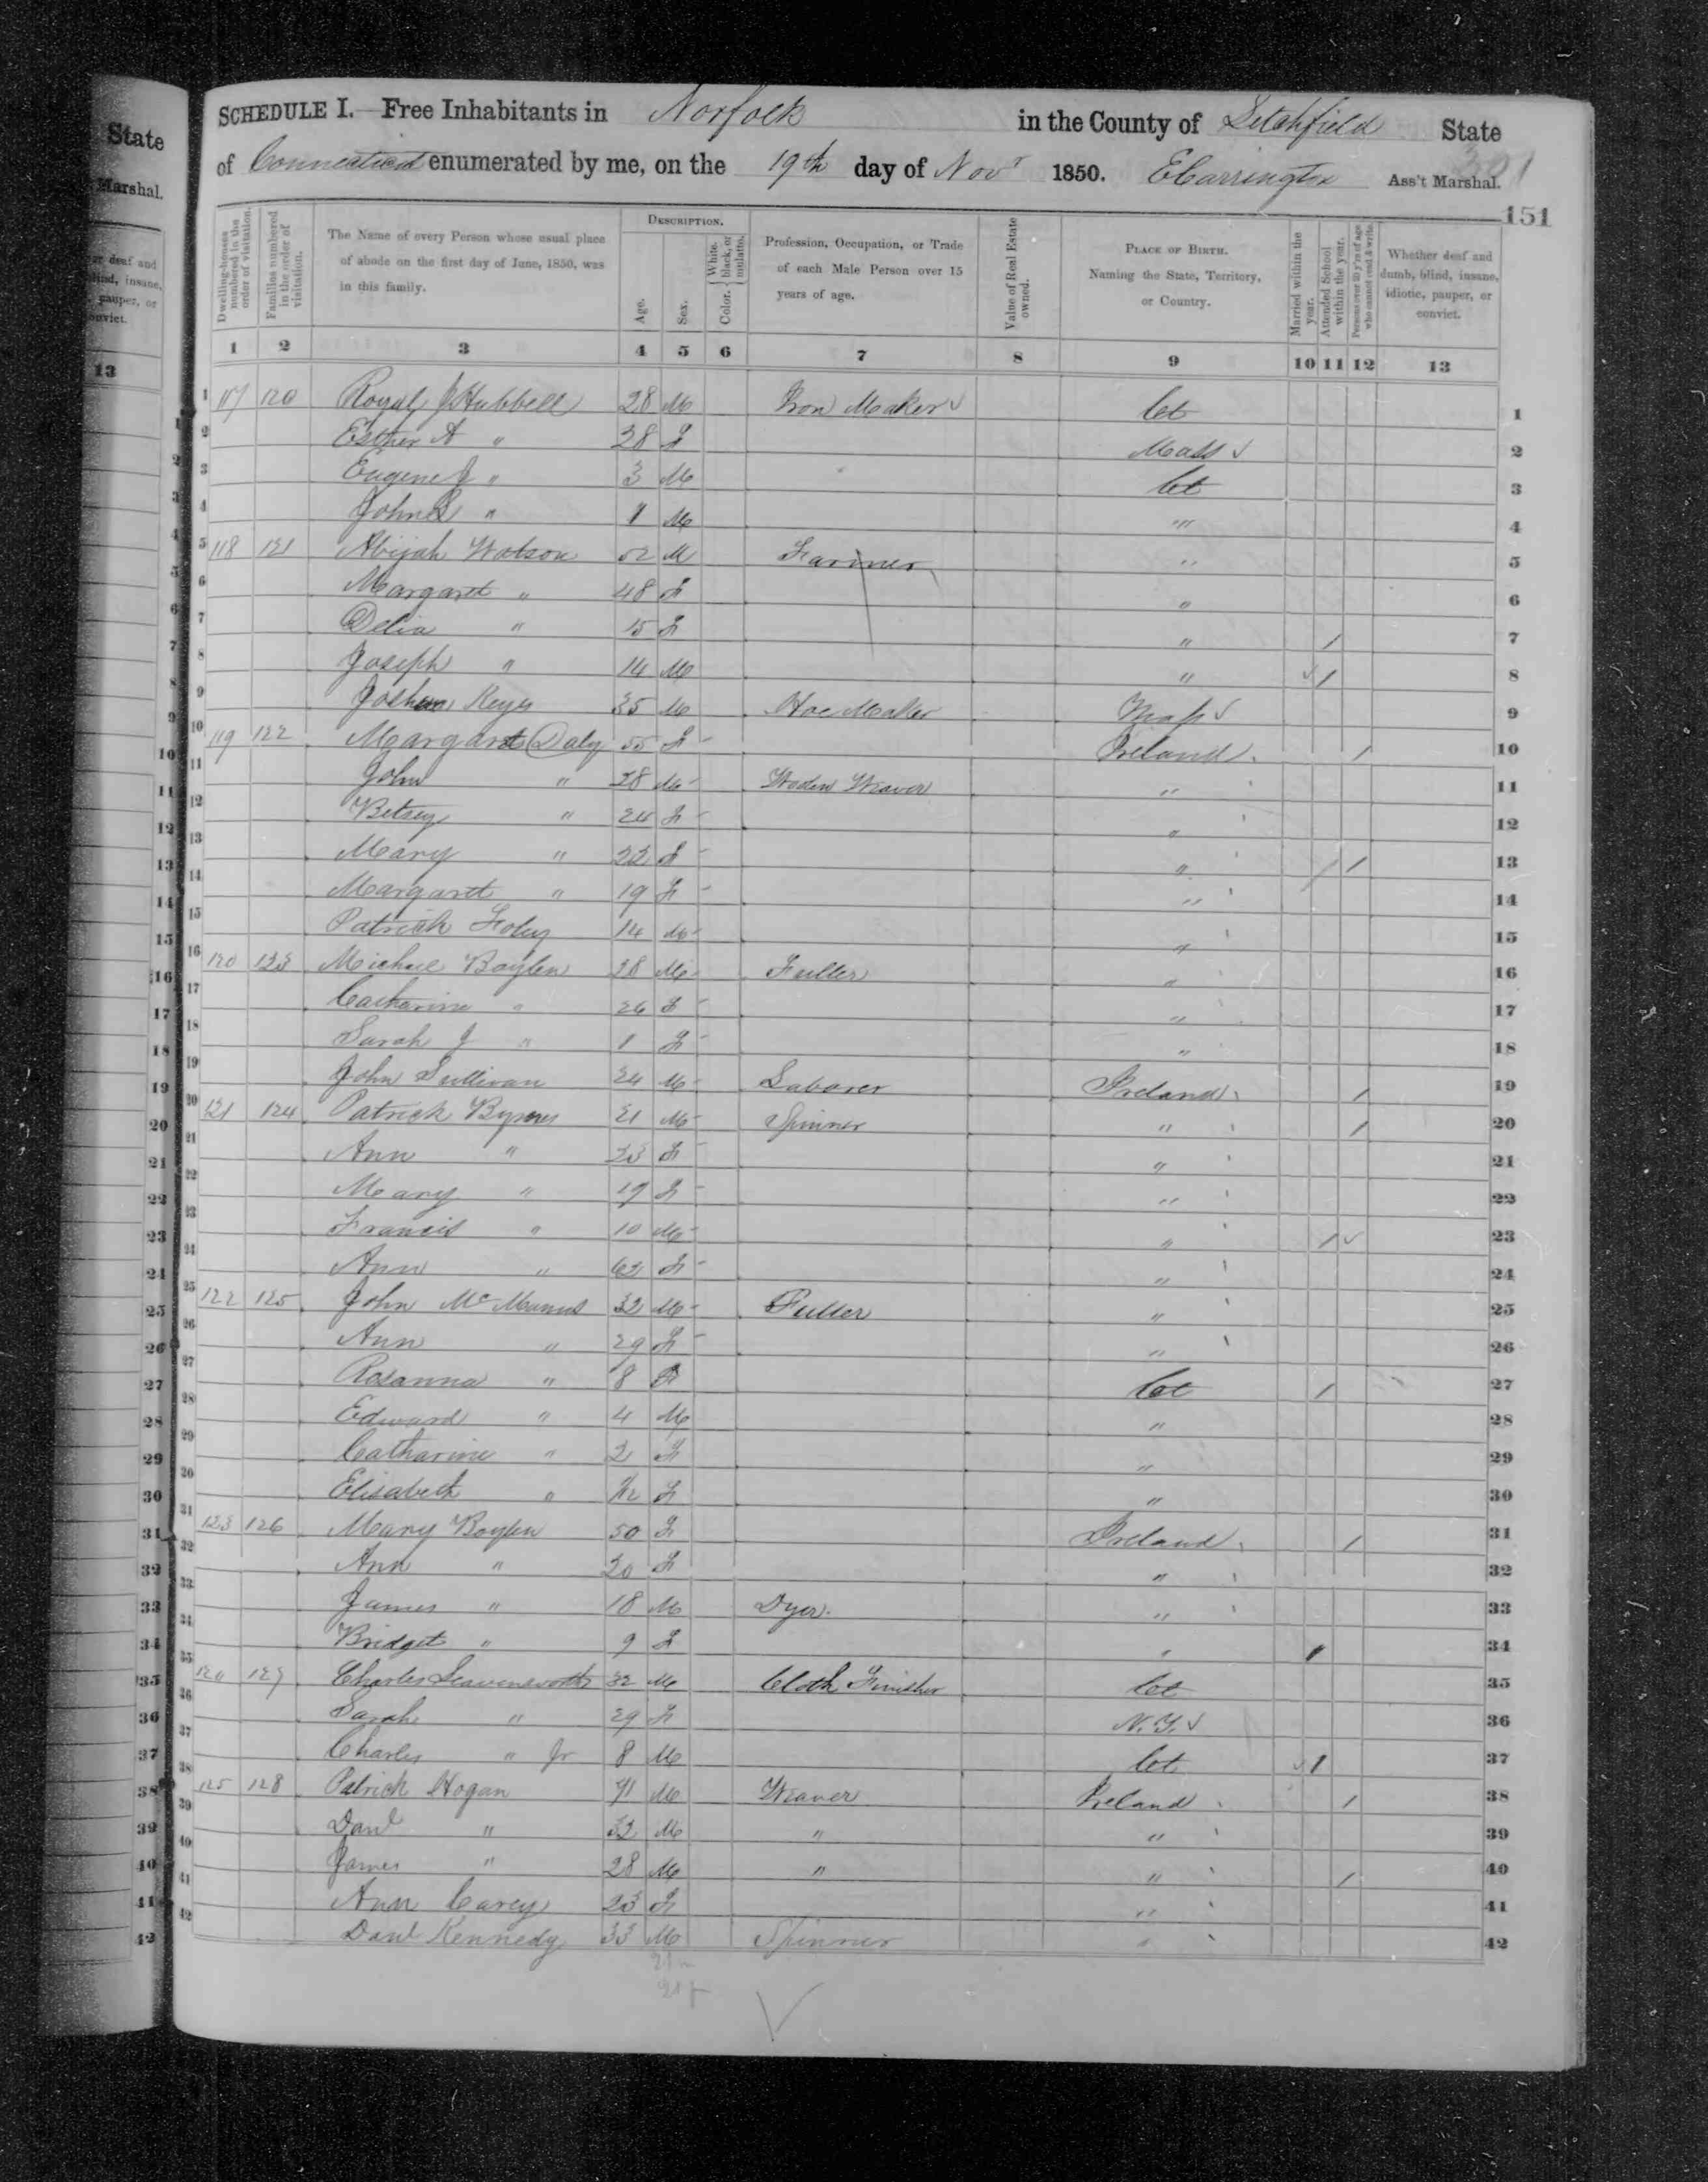 State
Marshal.
or deaf and
blind, insane,
pauper, or
convict.
13
SCHEDULE I.—Free Inhabitants in Norfolk in the County of Litchfield State
of Connecticut enumerated by me, on the 19th day of Novr 1850. E Carrington Ass't Marshal.
301
151
Dwelling-houses numbered in the order of visitation.
Families numbered in the order of visitation.
The Name of every Person whose usual place of abode on the first day of June, 1850, was in this family.
DESCRIPTION.
Age.
Sex.
Color. { White, black, or mulatto.
Profession, Occupation, or Trade of each Male Person over 15 years of age.
Value of Real Estate owned.
PLACE OF BIRTH. Naming the State, Territory, or Country.
Married within the year.
Attended School within the year.
Persons over 20 y'rs of age who cannot read & write.
Whether deaf and dumb, blind, insane, idiotic, pauper, or convict.
1 2 3 4 5 6 7 8 9 10 11 12 13
1 117 120 Royal J Hubbell 28 M Iron Maker ✓ Ct 1
2 Esther A " 28 F Mass ✓ 2
3 Eugene J " 3 M Ct 3
4 John " 1 M " 4
5 118 121 Abijah Watson 52 M Farmer " 5
6 Margaret " 48 F " 6
7 Delia " 15 F " / 7
8 Joseph " 14 M " ✓ / 8
9 Joshua Keyes 35 M Hoe Maker Mass ✓ 9
10 119 122 Margaret Daly 55 F Ireland / 10
11 John " 28 M Woolen Weaver " 11
12 Betsey " 24 F " 12
13 Mary " 22 F " / / 13
14 Margaret " 19 F " 14
15 Patrick Foley 14 M " 15
16 120 123 Michael Boylen 28 M Fuller " 16
17 Catharine " 26 F " 17
18 Sarah J " 1 F " 18
19 John Sullivan 24 M Laborer Ireland / 19
20 121 124 Patrick Byrnes 21 M Spinner " / 20
21 Ann " 23 F " 21
22 Mary " 19 F " 22
23 Francis " 10 M " / ✓ 23
24 Ann " 62 F " 24
25 122 125 John McManus 32 M Fuller " 25
26 Ann " 29 F " 26
27 Rosanna " 8 F Ct / 27
28 Edward " 4 M " 28
29 Catharine " 2 F " 29
30 Elisabeth " F " 30
31 123 126 Mary Boylen 50 F Ireland / 31
32 Ann " 20 F " 32
33 James " 18 M Dyer. " 33
34 Bridget " 9 F " / 34
35 124 127 Charles Leavensworth 32 M Cloth Finisher Ct 35
36 Sarah " 29 F N.Y. ✓ 36
37 Charles " Jr 8 M Ct ✓ / 37
38 125 128 Patrick Hogan 71 M Weaver Ireland / 38
39 Danl " 32 M " " 39
40 James " 28 M " " / 40
41 Ann Carey 23 F " 41
42 Danl Kennedy 33 M Spinner " 42
21 m
21 f